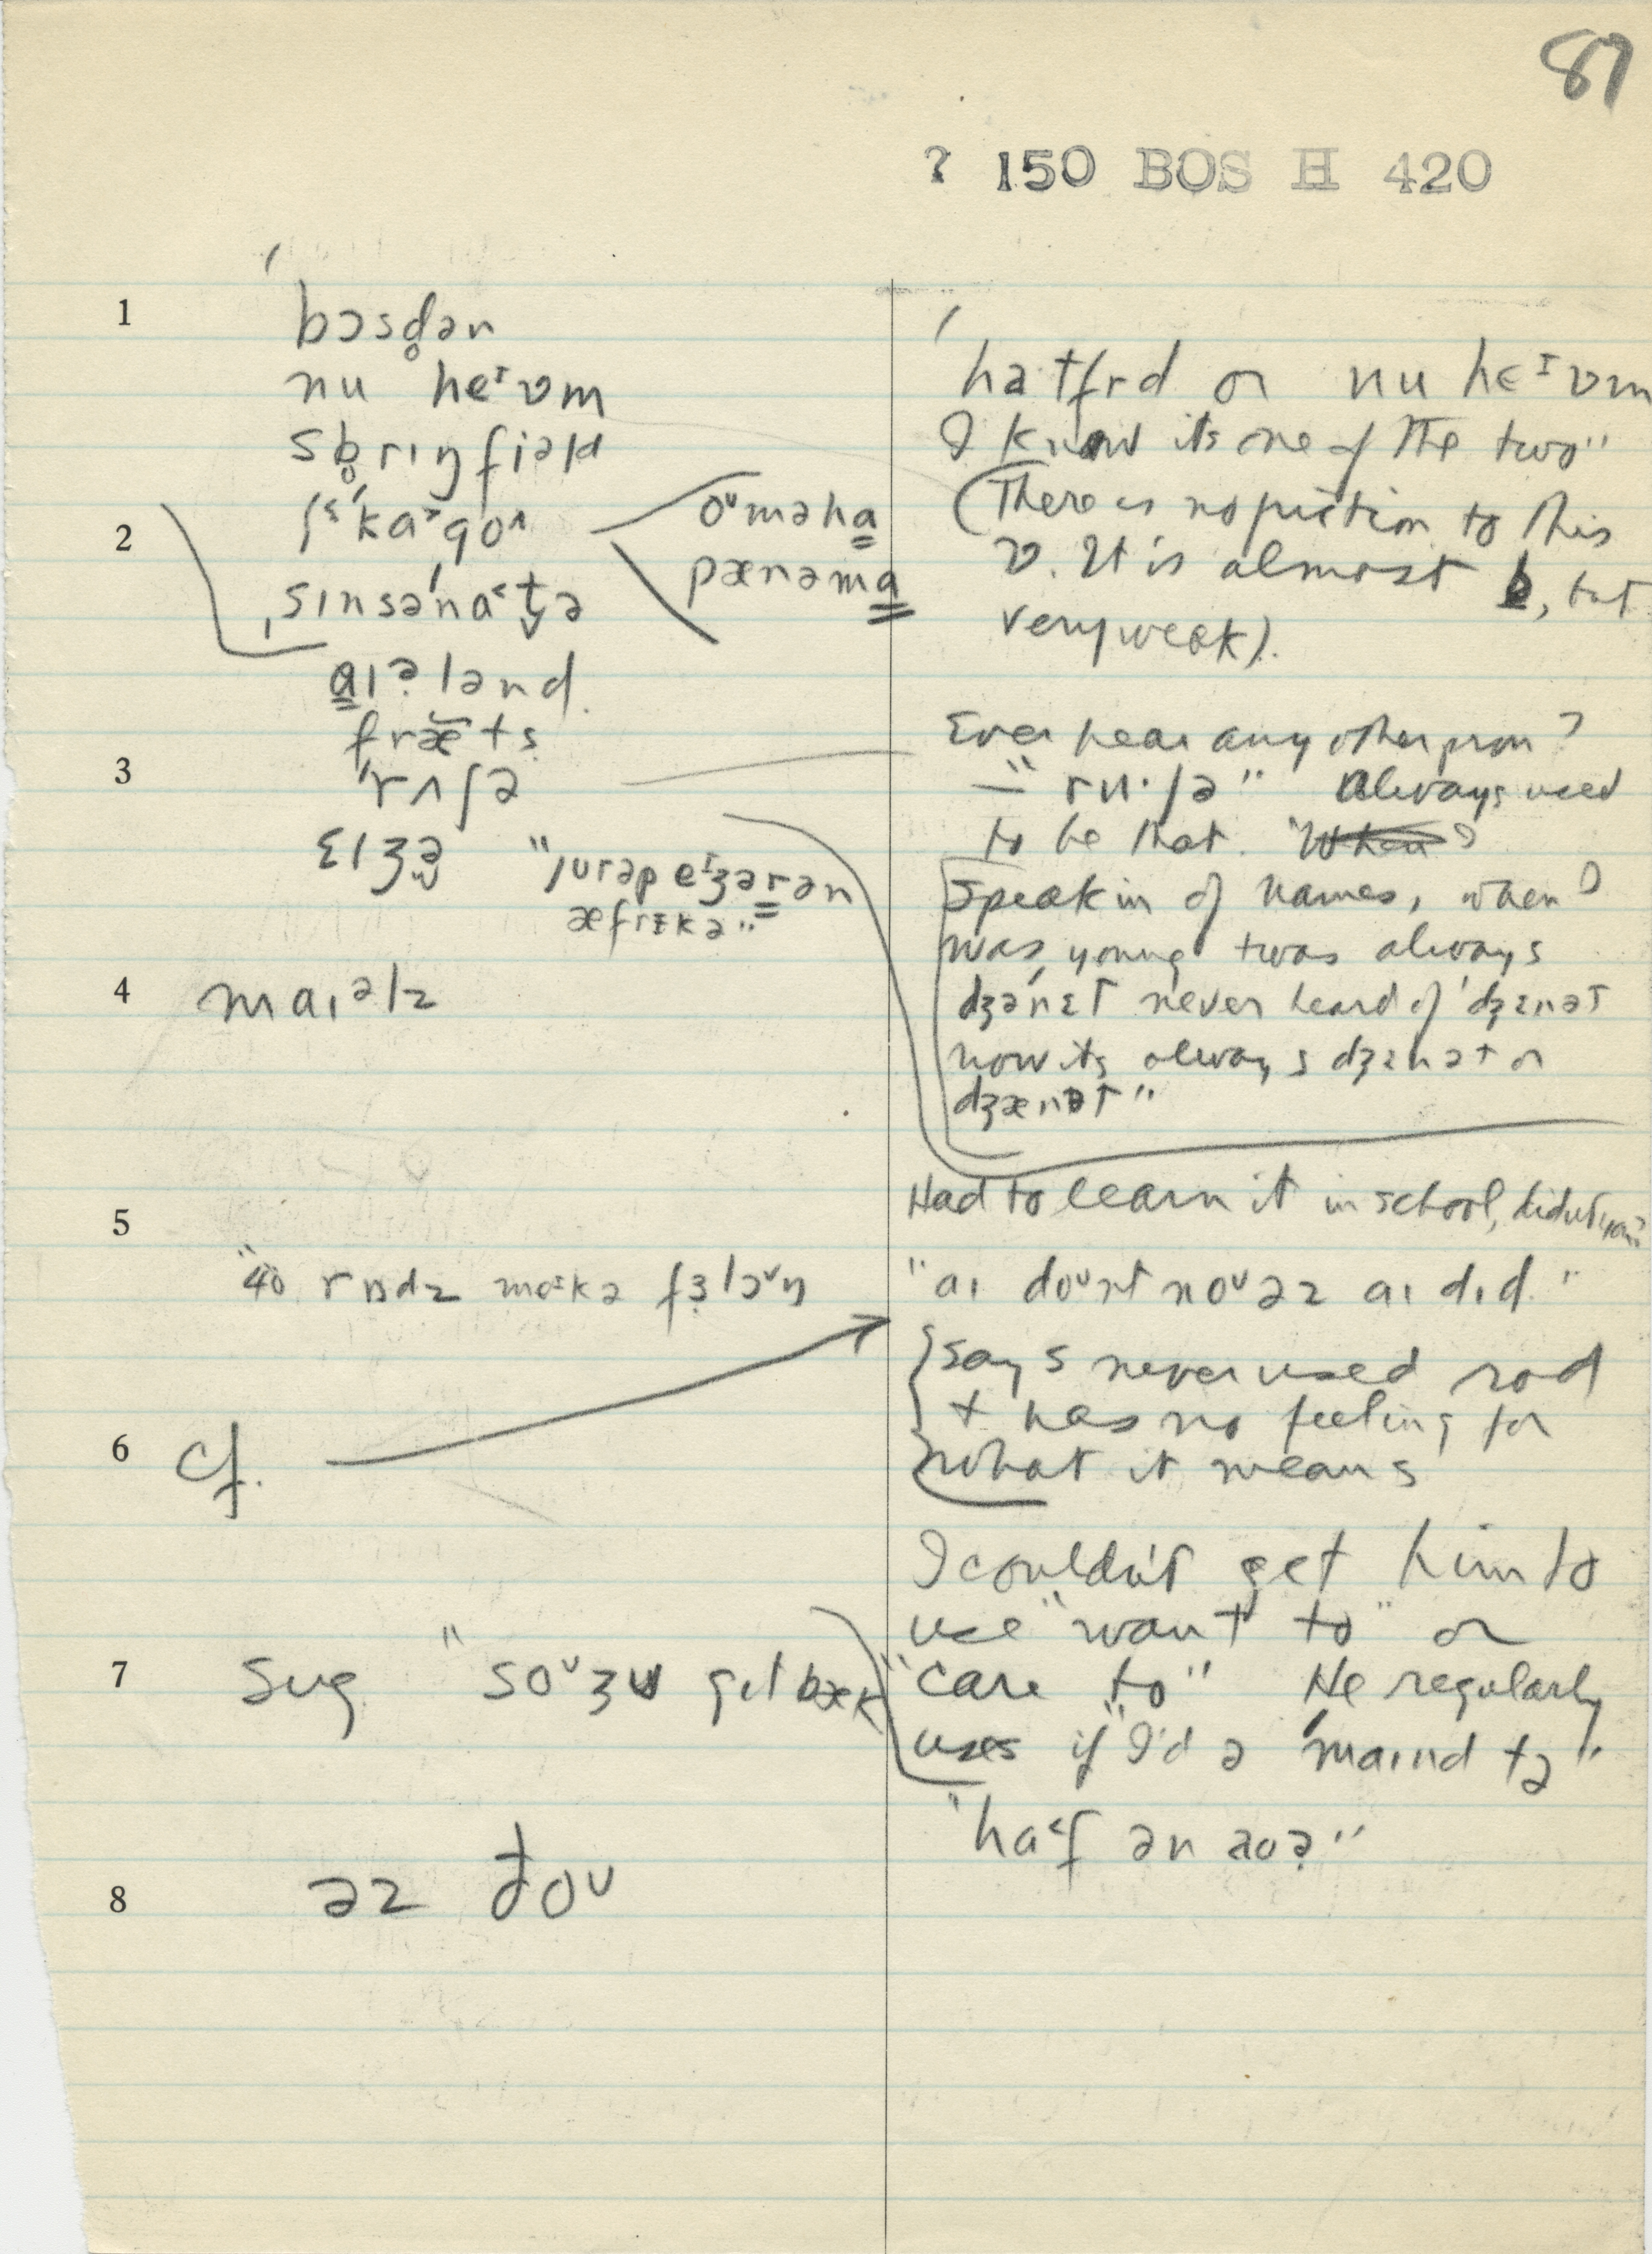 87
? 150 BOS H 420
1
bɔsd̥ən
nu heᴵvm
sb̥rɪŋfiəld
2
oᵘməha
pænəma
sɪnsə'na˂t̬ə
aɪə̣lənd
fræ̆ts
3
'rʌʃə
ɛɪʒə
"jurəpeᴵʒərən
æfrɪkə"
4
maɪəlz
5
"40 rɒdz
6
cf.
7
sug. "soᵘʒu gɪt bæk
8
əz ðoᵘ
ha·tfrd or nu heᴵvm
I know its one of the two"
(There is no friction to this
v. It is almost b, but
very weak).
Ever hear any other pron?
– "ru·ʃə" Always used
to be that. "When I
Speakin of names, when I
was young twas always
dʒə'nɛt never heard of 'dʒɛnət
now its always dʒɛnət or
dʒænət"
Had to learn it in school, didn't you?
"aɪ doᵘnt noᵘ əz aɪ dɪd."
says never used rod
+ has no feeling for
what it means
I couldn't get him to
use "want to" or
"care to" He regularly
uses if "I'd ə 'maɪnd tə"
"ha˂f ən aʊə̣"